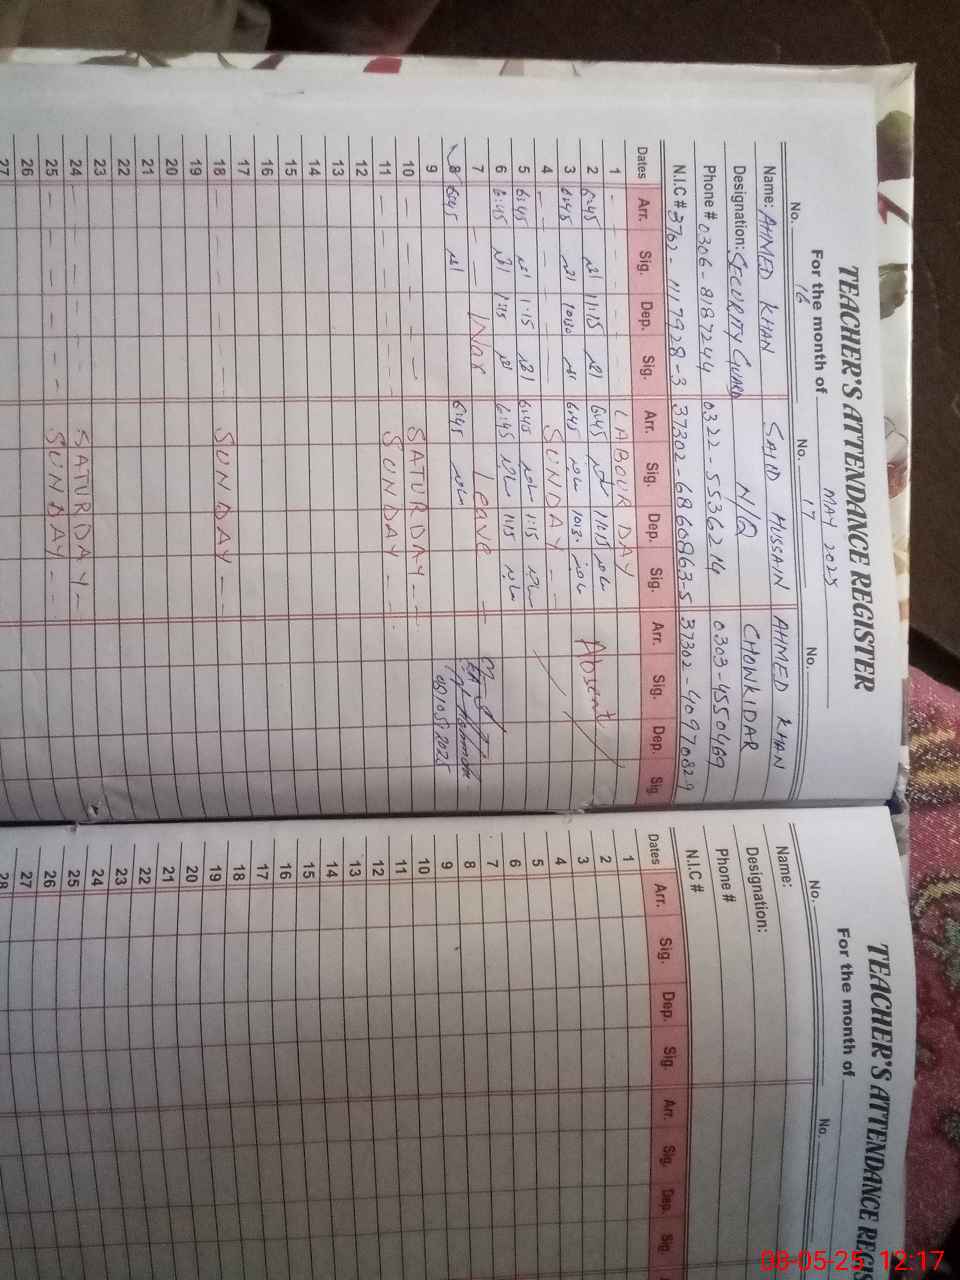 TEACHER'S ATTENDANCE REGISTER
For the month of MAY 2025
No. 16 No. 17 No.
Name: AHMED KHAN SAJID HUSSAIN AHMED KHAN
Designation: SECURITY GUARD N/Q CHOWKIDAR
Phone # 0306-8187244 0322-5536214 0303-4550469
N.I.C # 37302-6860863-5 37302-4097082-9
Dates Arr. Sig. Dep. Sig. Arr. Sig. Dep. Sig. Arr. Sig. Dep. Sig.
1 LABOUR DAY
2 6:45 11:15 6:45 11:15 Absent
3 6:45 10:30 6:45 10:30
4 SUNDAY
5 6:45 1:15 6:45 1:15
6 6:45 1:15 6:45 1:15
7 Leave
8 6:45 6:45
08/05/2025
9
10 SATURDAY
11 SUNDAY
12
13
14
15
16
17
18 SUNDAY
19
20
21
22
23
24 SATURDAY
25 SUNDAY
26
27
TEACHER'S ATTENDANCE REGI
For the month of
No. No.
Name:
Designation:
Phone #
N.I.C #
Dates Arr. Sig. Dep. Sig. Arr. Sig. Dep. Sig.
1
2
3
4
5
6
7
8
9
10
11
12
13
14
15
16
17
18
19
20
21
22
23
24
25
26
27
28
08-05-25 12:17